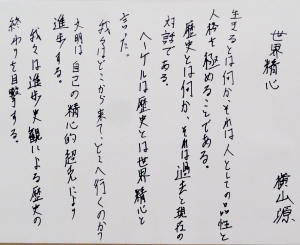 世界精神
横山源
生きるとは何か、それは人としての品性と
人格を極めることである。
歴史とは何か、それは過去と現在の
対話である。
ヘーゲルは歴史とは世界精神と
言った。
我々はどこから来て、どこへ行くのか？
文明は自己の精神的超克により
進歩する。
我々は進歩史観による歴史の
終わりを目撃する。